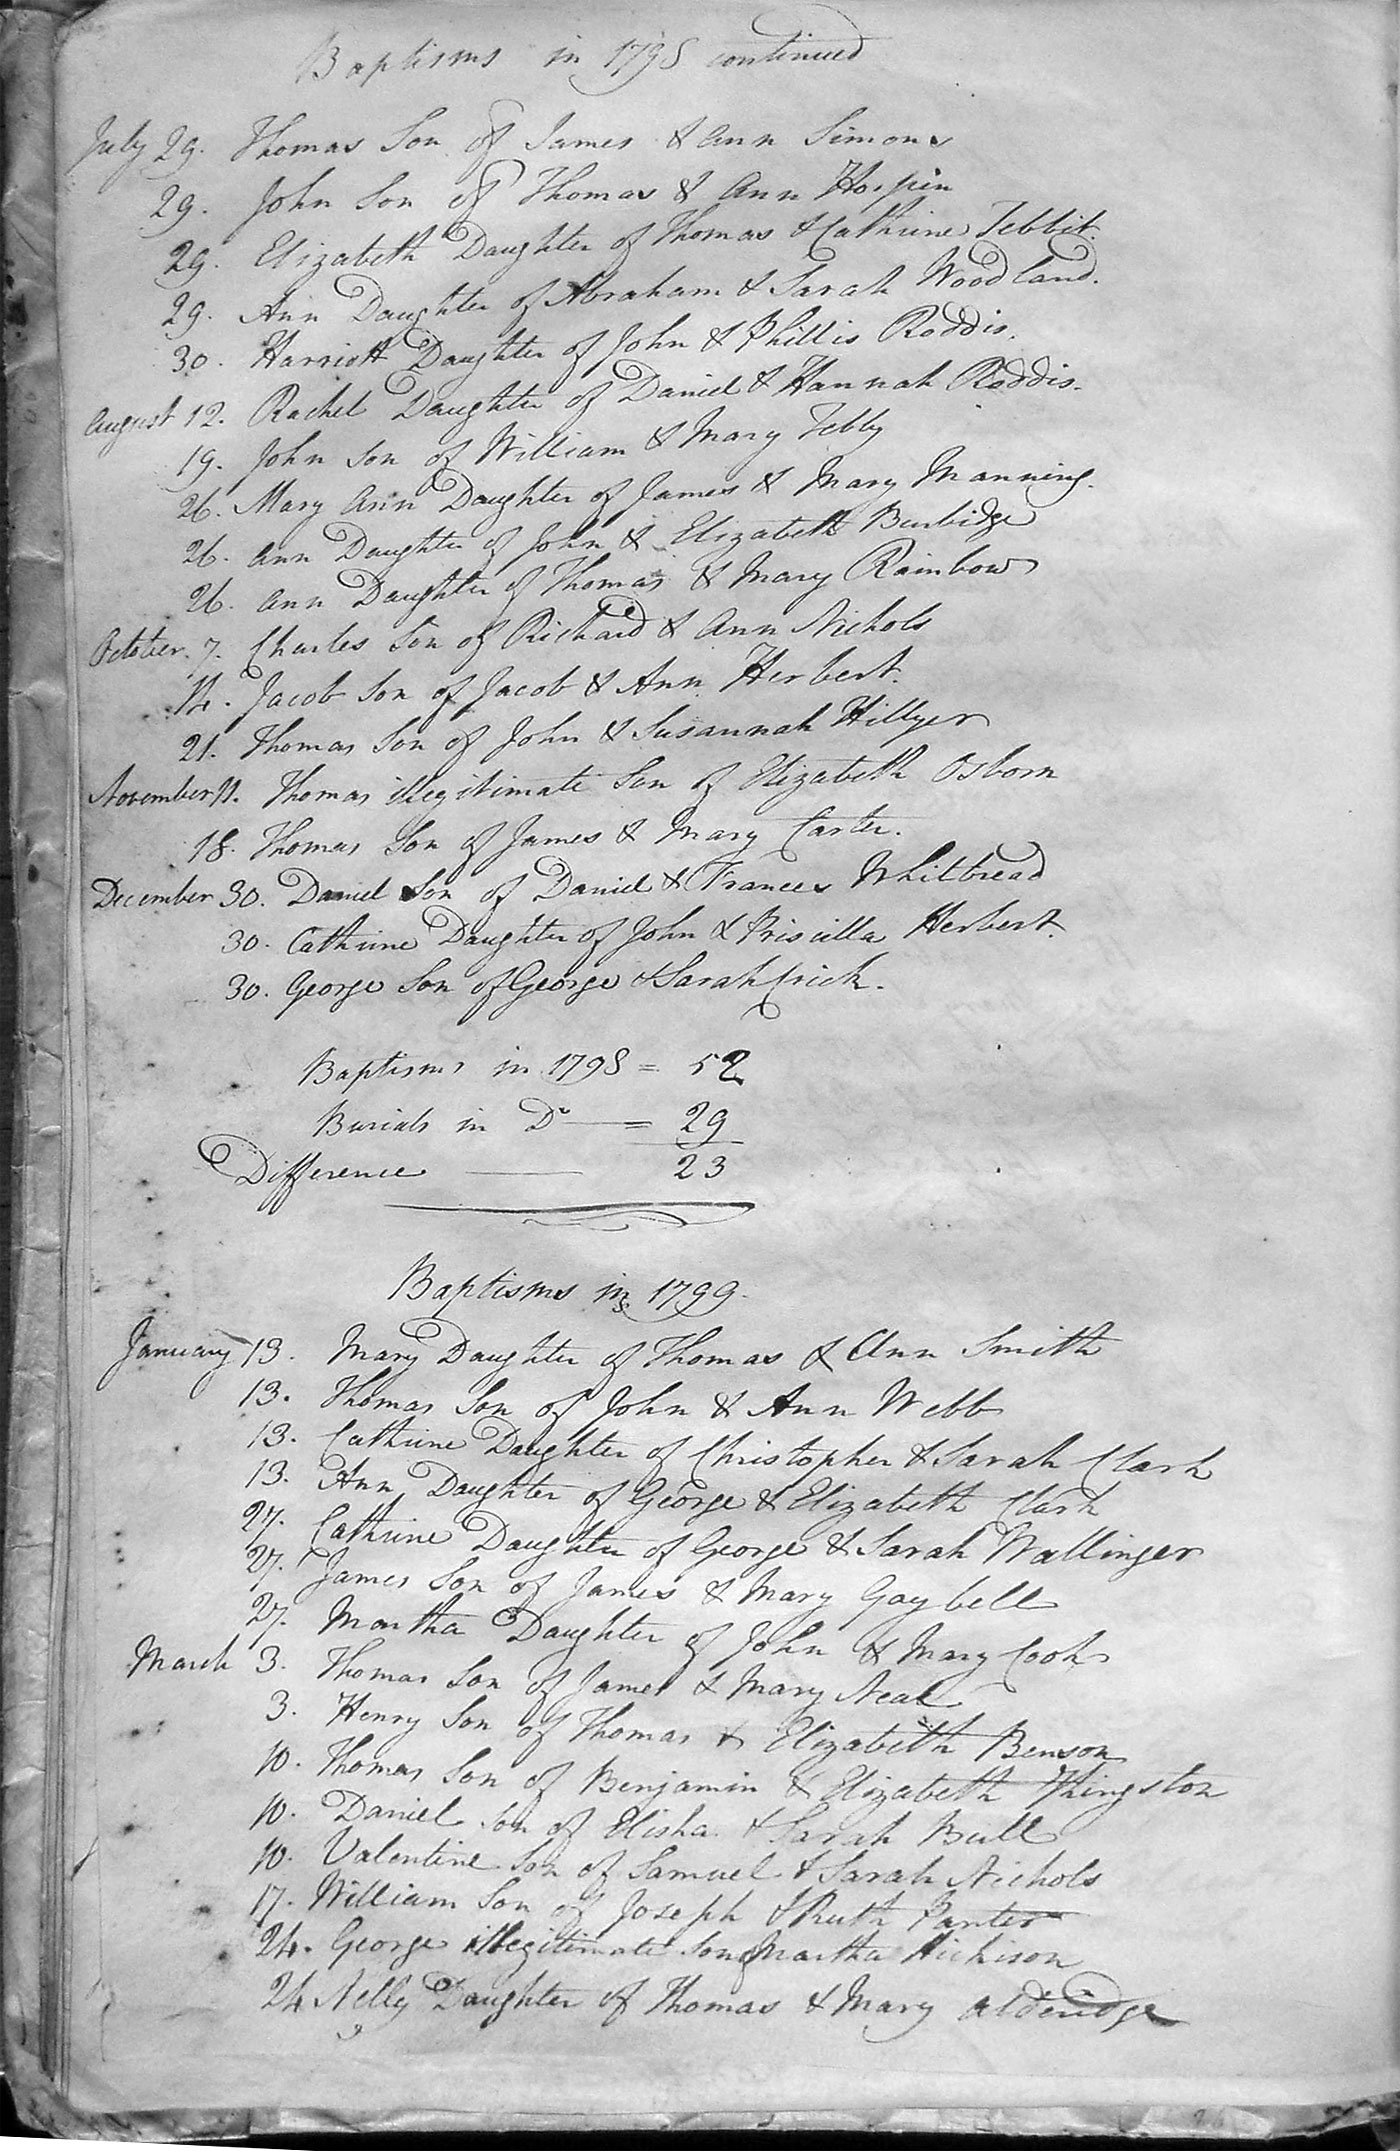 Baptisms in 1798 continued
July 29. Thomas Son of James & Ann Simons
29. John Son of Thomas & Ann Hospin
29. Elizabeth Daughter of Thomas & Cathrine Tebbit.
29. Ann Daughter of Abraham & Sarah Woodland.
30. Harriott Daughter of John & Phillis Roddis.
August 12. Rachel Daughter of Daniel & Hannah Roddis.
19. John Son of William & Mary Tebby
26. Mary Ann Daughter of James & Mary Manning.
26. Ann Daughter of John & Elizabeth Burbidge
26. Ann Daughter of Thomas & Mary Rainbow
October 7. Charles Son of Richard & Ann Nichols
14. Jacob Son of Jacob & Ann Herbert.
21. Thomas Son of John & Susannah Hillyer
November 11. Thomas illegitimate Son of Elizabeth Osborn
18. Thomas Son of James & Mary Carter.
December 30. Daniel Son of Daniel & Frances Whitbread
30. Cathrine Daughter of John & Priscilla Herbert.
30. George Son of George & Sarah Crick.
Baptisms in 1798 = 52
Burials in Do — = 29
Difference — 23
Baptisms in 1799.
January 13. Mary Daughter of Thomas & Ann Smith
13. Thomas Son of John & Ann Webb
13. Cathrine Daughter of Christopher & Sarah Clark
13. Ann Daughter of George & Elizabeth Clark
27. Cathrine Daughter of George & Sarah Wallinger
27. James Son of James & Mary Gaybell
27. Martha Daughter of John & Mary Cook
March 3. Thomas Son of James & Mary Neal
3. Henry Son of Thomas & Elizabeth Benson
10. Thomas Son of Benjamin & Elizabeth Thingston
10. Daniel Son of Elisha & Sarah Bull
10. Valentine Son of Samuel & Sarah Nichols
17. William Son of Joseph & Ruth Panter
24. George illegitimate Son of Martha Hichison
24 Nelly Daughter of Thomas & Mary Alderidge